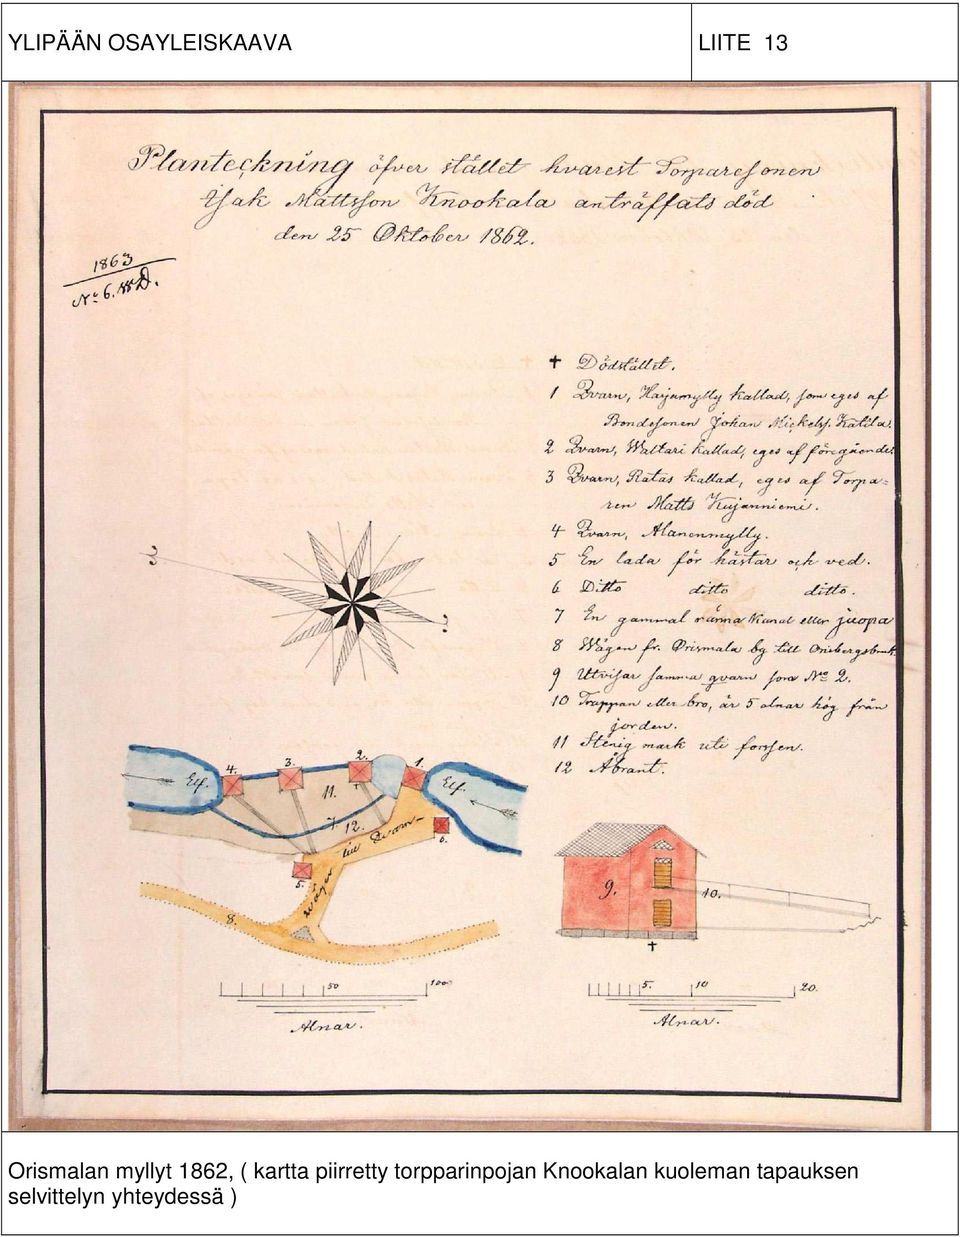 YLIPÄÄN OSAYLEISKAAVA LIITE 13
Planteckning öfver stället hvarest Torparesonen
Isak Mattsson Knookala anträffats död
den 25 Oktober 1862.
1863
No 6.
† Dödstället.
1 Qvarn, Harjumylly kallad, som eges af
Bondesonen Johan Mickelss. Katila.
2 Qvarn, Waltari kallad, eges af föregående.
3 Qvarn, Ratas kallad, eges af Torpa=
ren Matts Kujanniemi.
4 Qvarn, Alanenmylly.
5 En lada för hästar och ved.
6 Ditto ditto ditto.
7 En gammal ränna Kanal eller juopa
8 Wägen fr. Orismala by till Orisbergsbruk.
9 Utvisar samma qvarn som No 2.
10 Trappan eller bro, är 5 alnar hög från
jorden.
11 Stenig mark uti forssen.
12 Åbrant.
Elf. 4. 3. 2. 1. Elf.
11.
7. 12.
wägen till Qvarn
6.
5.
8.
9. 10.
†
50 100
Alnar.
5. 10 20.
Alnar.
Orismalan myllyt 1862, ( kartta piirretty torpparinpojan Knookalan kuoleman tapauksen
selvittelyn yhteydessä )